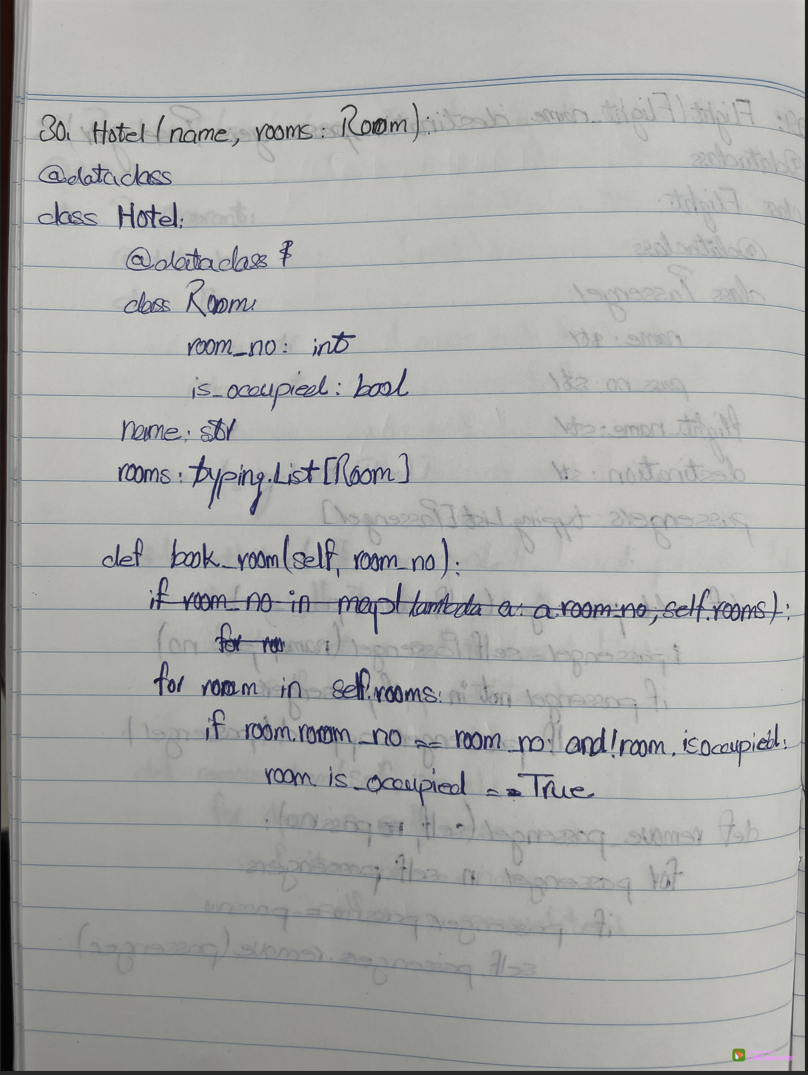 30. Hotel (name, rooms: Room):
@dataclass
class Hotel:
@dataclass
class Room:
room_no: int
is_occupied: bool
name: str
rooms: typing.List[Room]
def book_room(self, room_no):
if room_no in map(lambda a: a.room_no, self.rooms):
for
for room in self.rooms:
if room.room_no == room_no: and !room.isoccupied:
room is_occupied == True